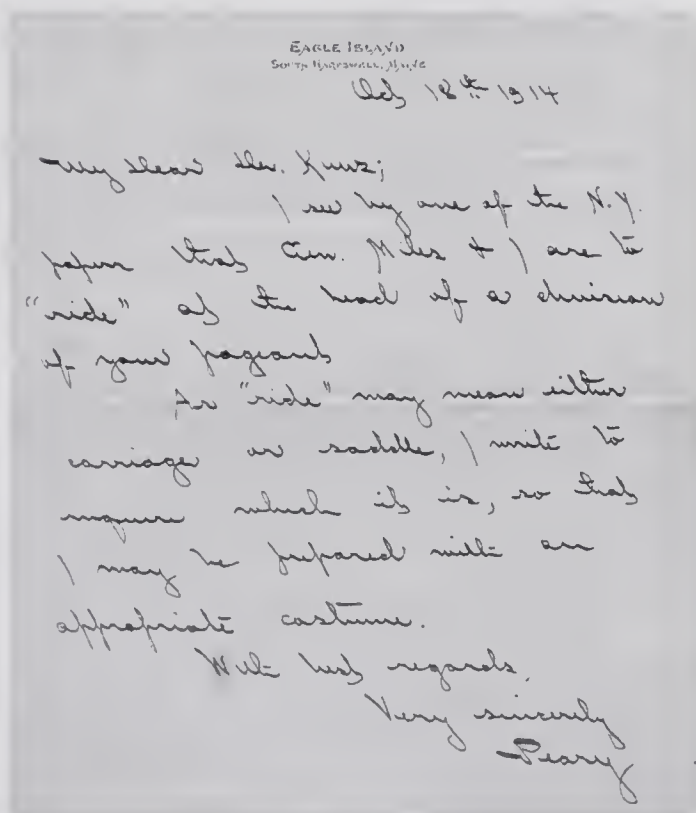 EAGLE ISLAND
SOUTH HARPSWELL, MAINE
Oct 18th 1914
My dear Dr. Kunz;
I see by one of the N.Y.
papers that Gen. Miles & I are to
"ride" at the head of a division
of your pageant
As "ride" may mean either
carriage or saddle, I write to
inquire which it is, so that
I may be prepared with an
appropriate costume.
With best regards,
Very sincerely
Peary